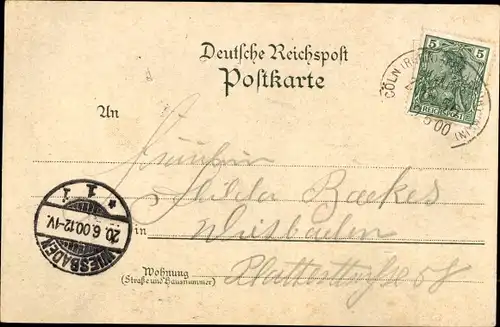 Deutsche Reichspost
Postkarte
5
REICHSPOST
CÖLN (RHEIN
5 00
An
Fräulein
Hilda Backes
in Wiesbaden
WIESBADEN
* 1 1
20.6.00.12-1V.
Wohnung
(Straße und Hausnummer)
Platterstraße 58